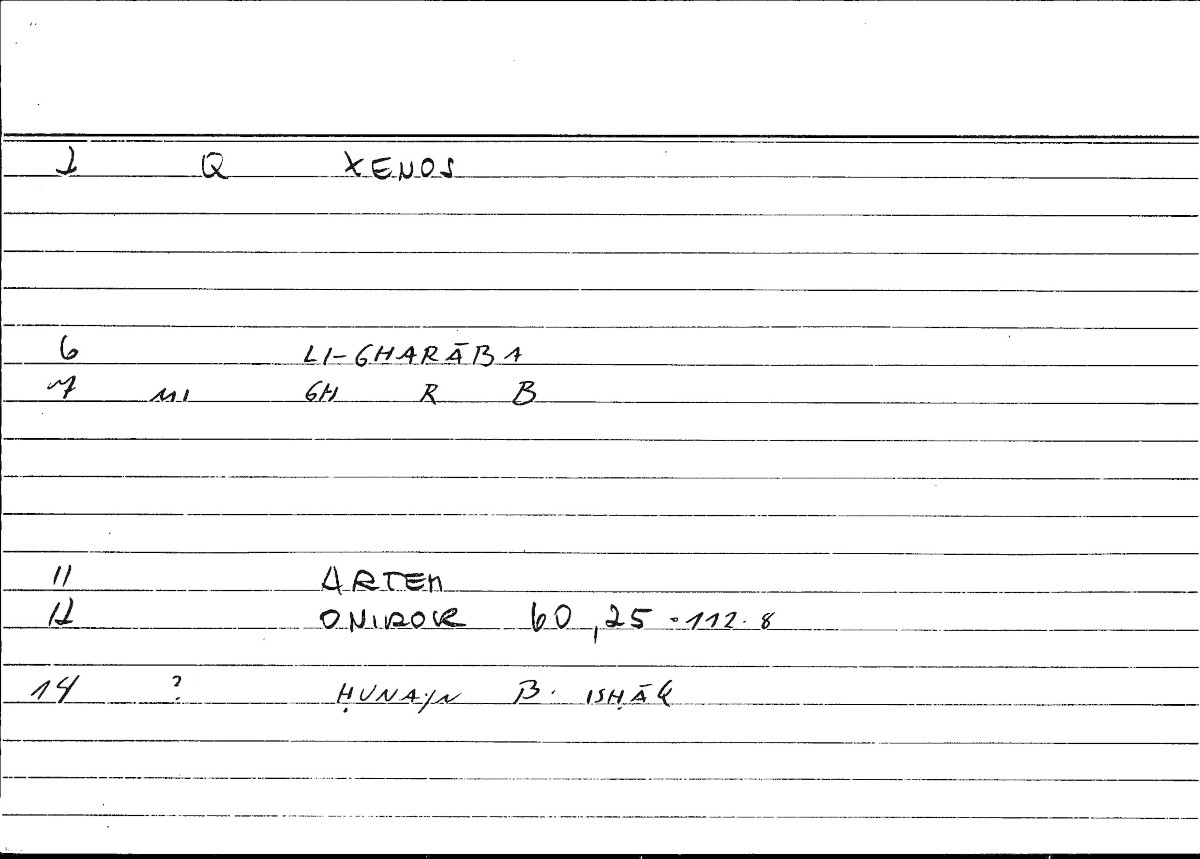 1 Q XENOS
6 LI-GHARĀBA
7 MI GH R B
11 ARTEM
12 ONIROCR 60,25 · 112.8
14 ? ḤUNAYN B. ISḤĀḲ